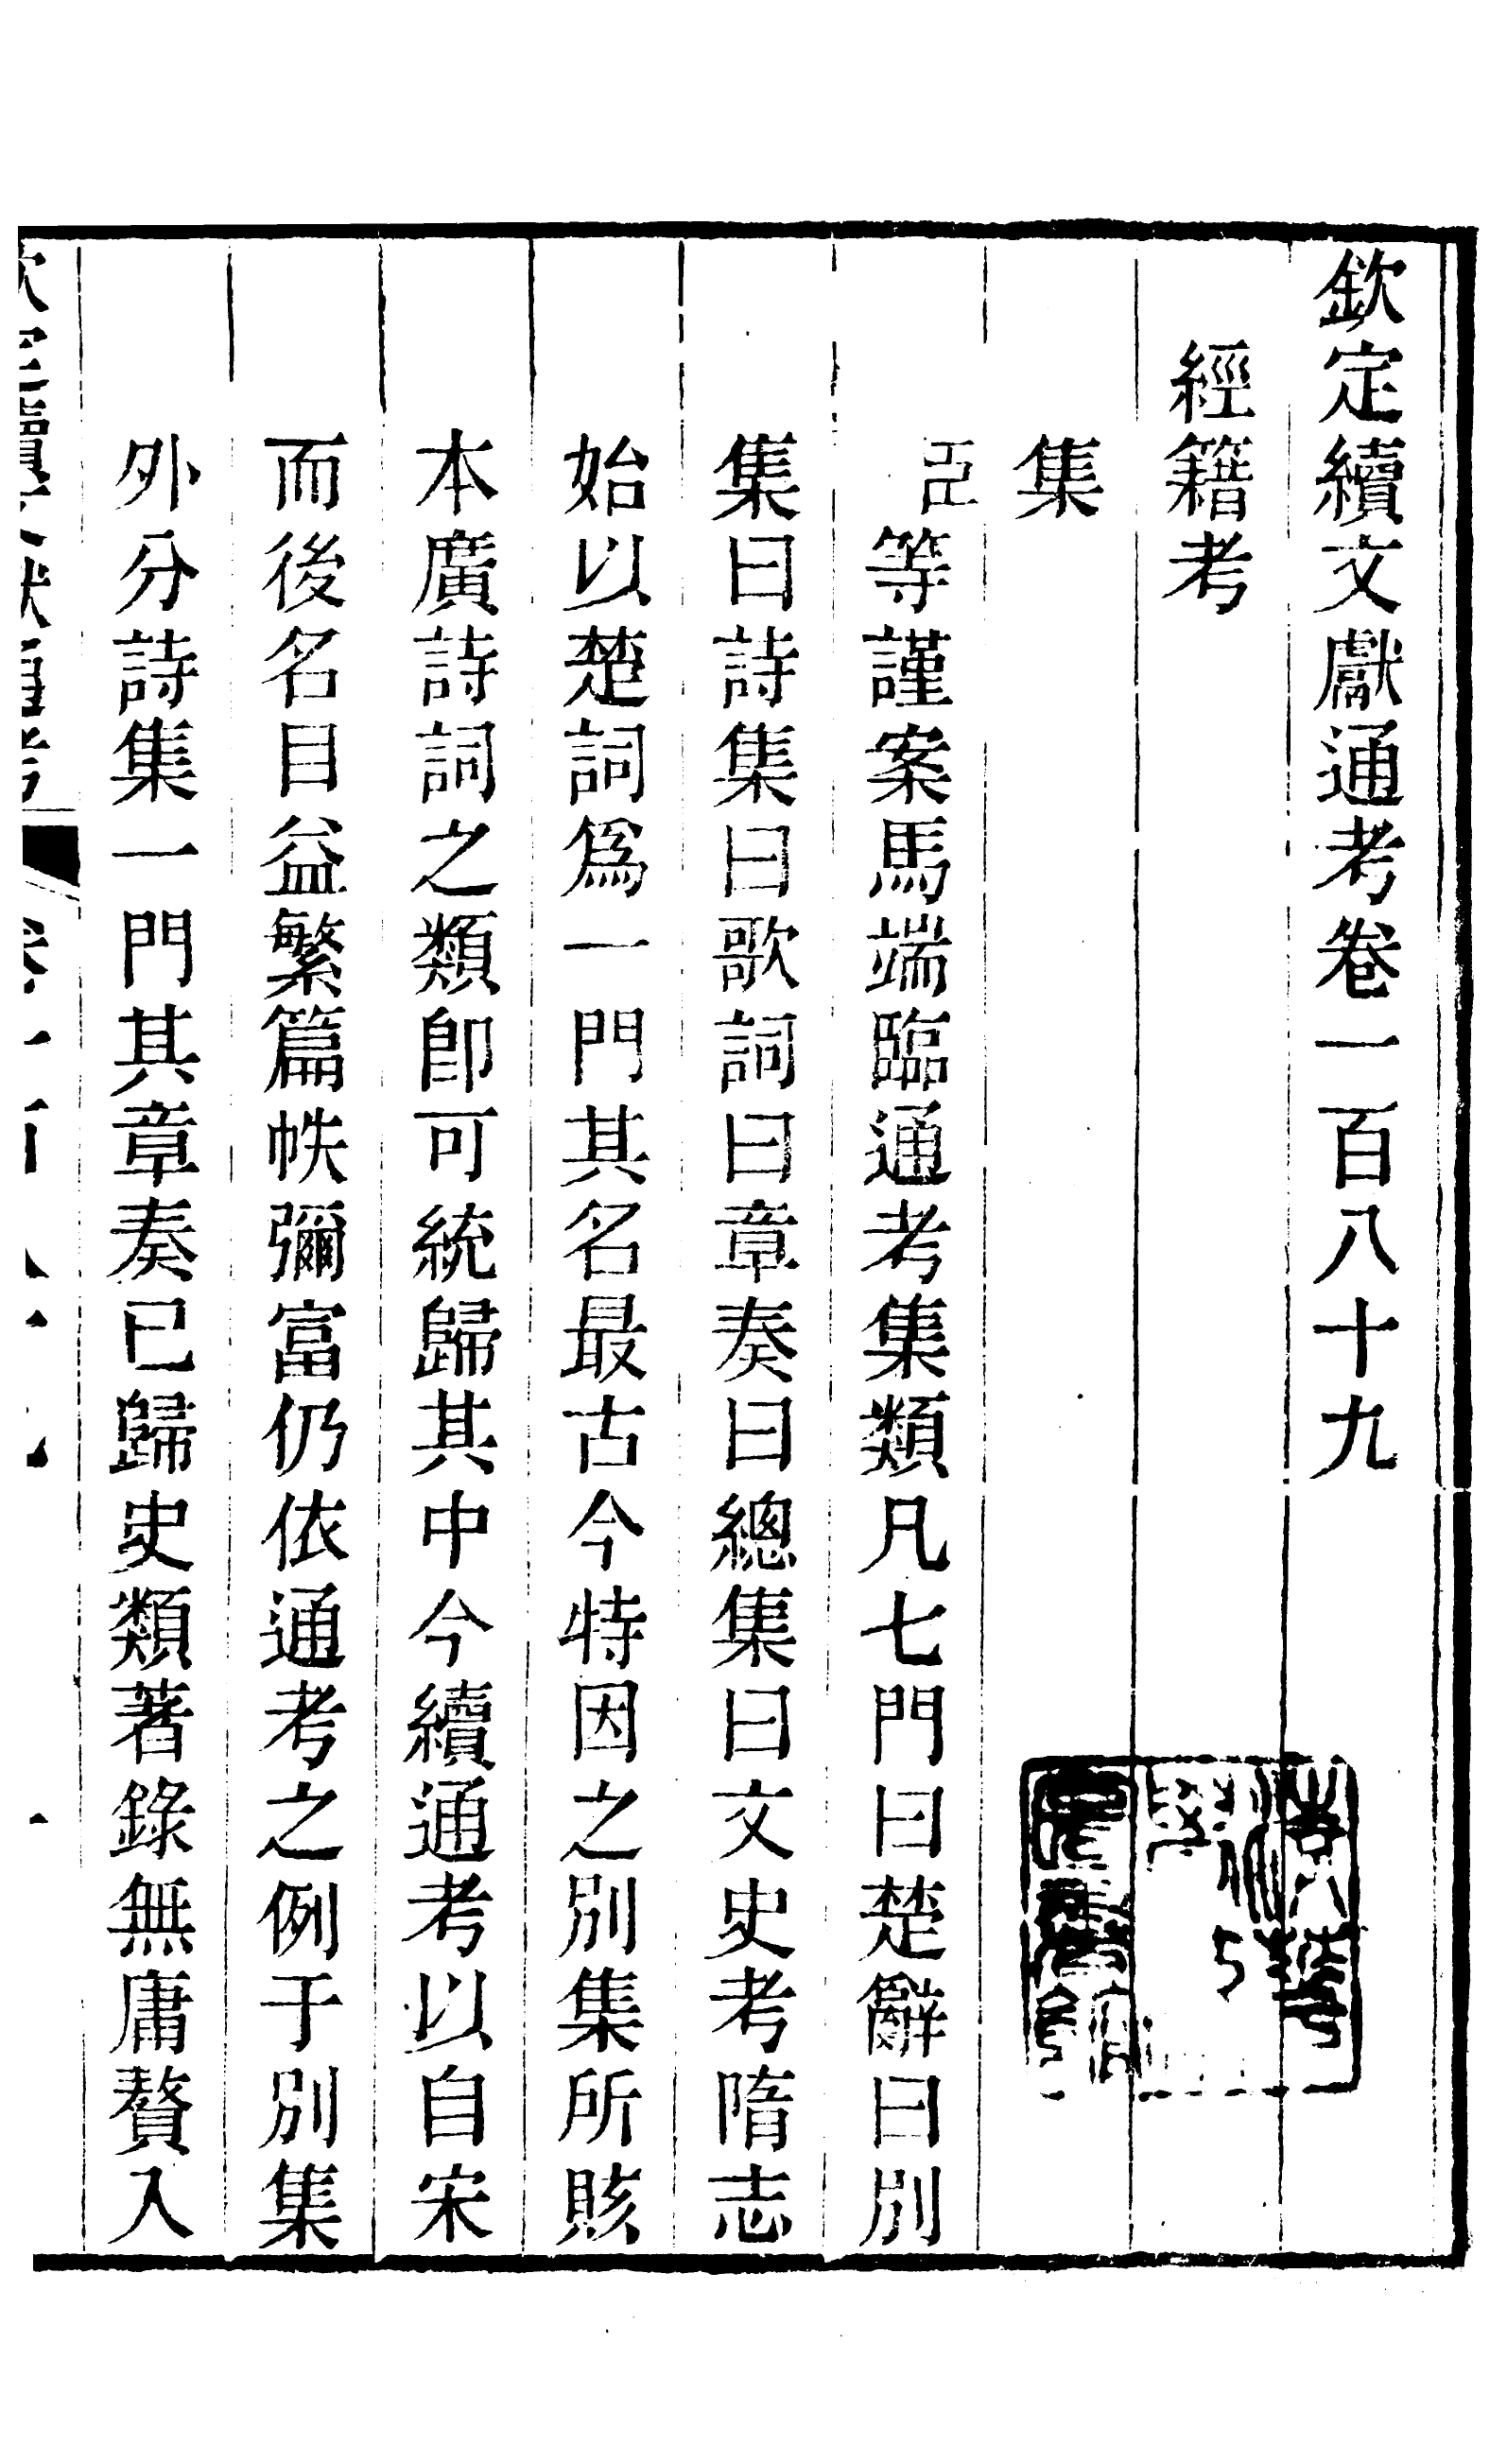 欽定續文獻通考卷一百八十九
經籍考
集
臣等謹案馬端臨通考集類凡七門曰楚辭曰別
集曰詩集曰歌詞曰章奏曰總集曰文史考隋志
始以楚詞爲一門其名最古今特因之別集所賅
本廣詩詞之類卽可統歸其中今續通考以自宋
而後名目益繁篇帙彌富仍依通考之例于別集
外分詩集一門其章奏已歸史類著錄無庸贅入